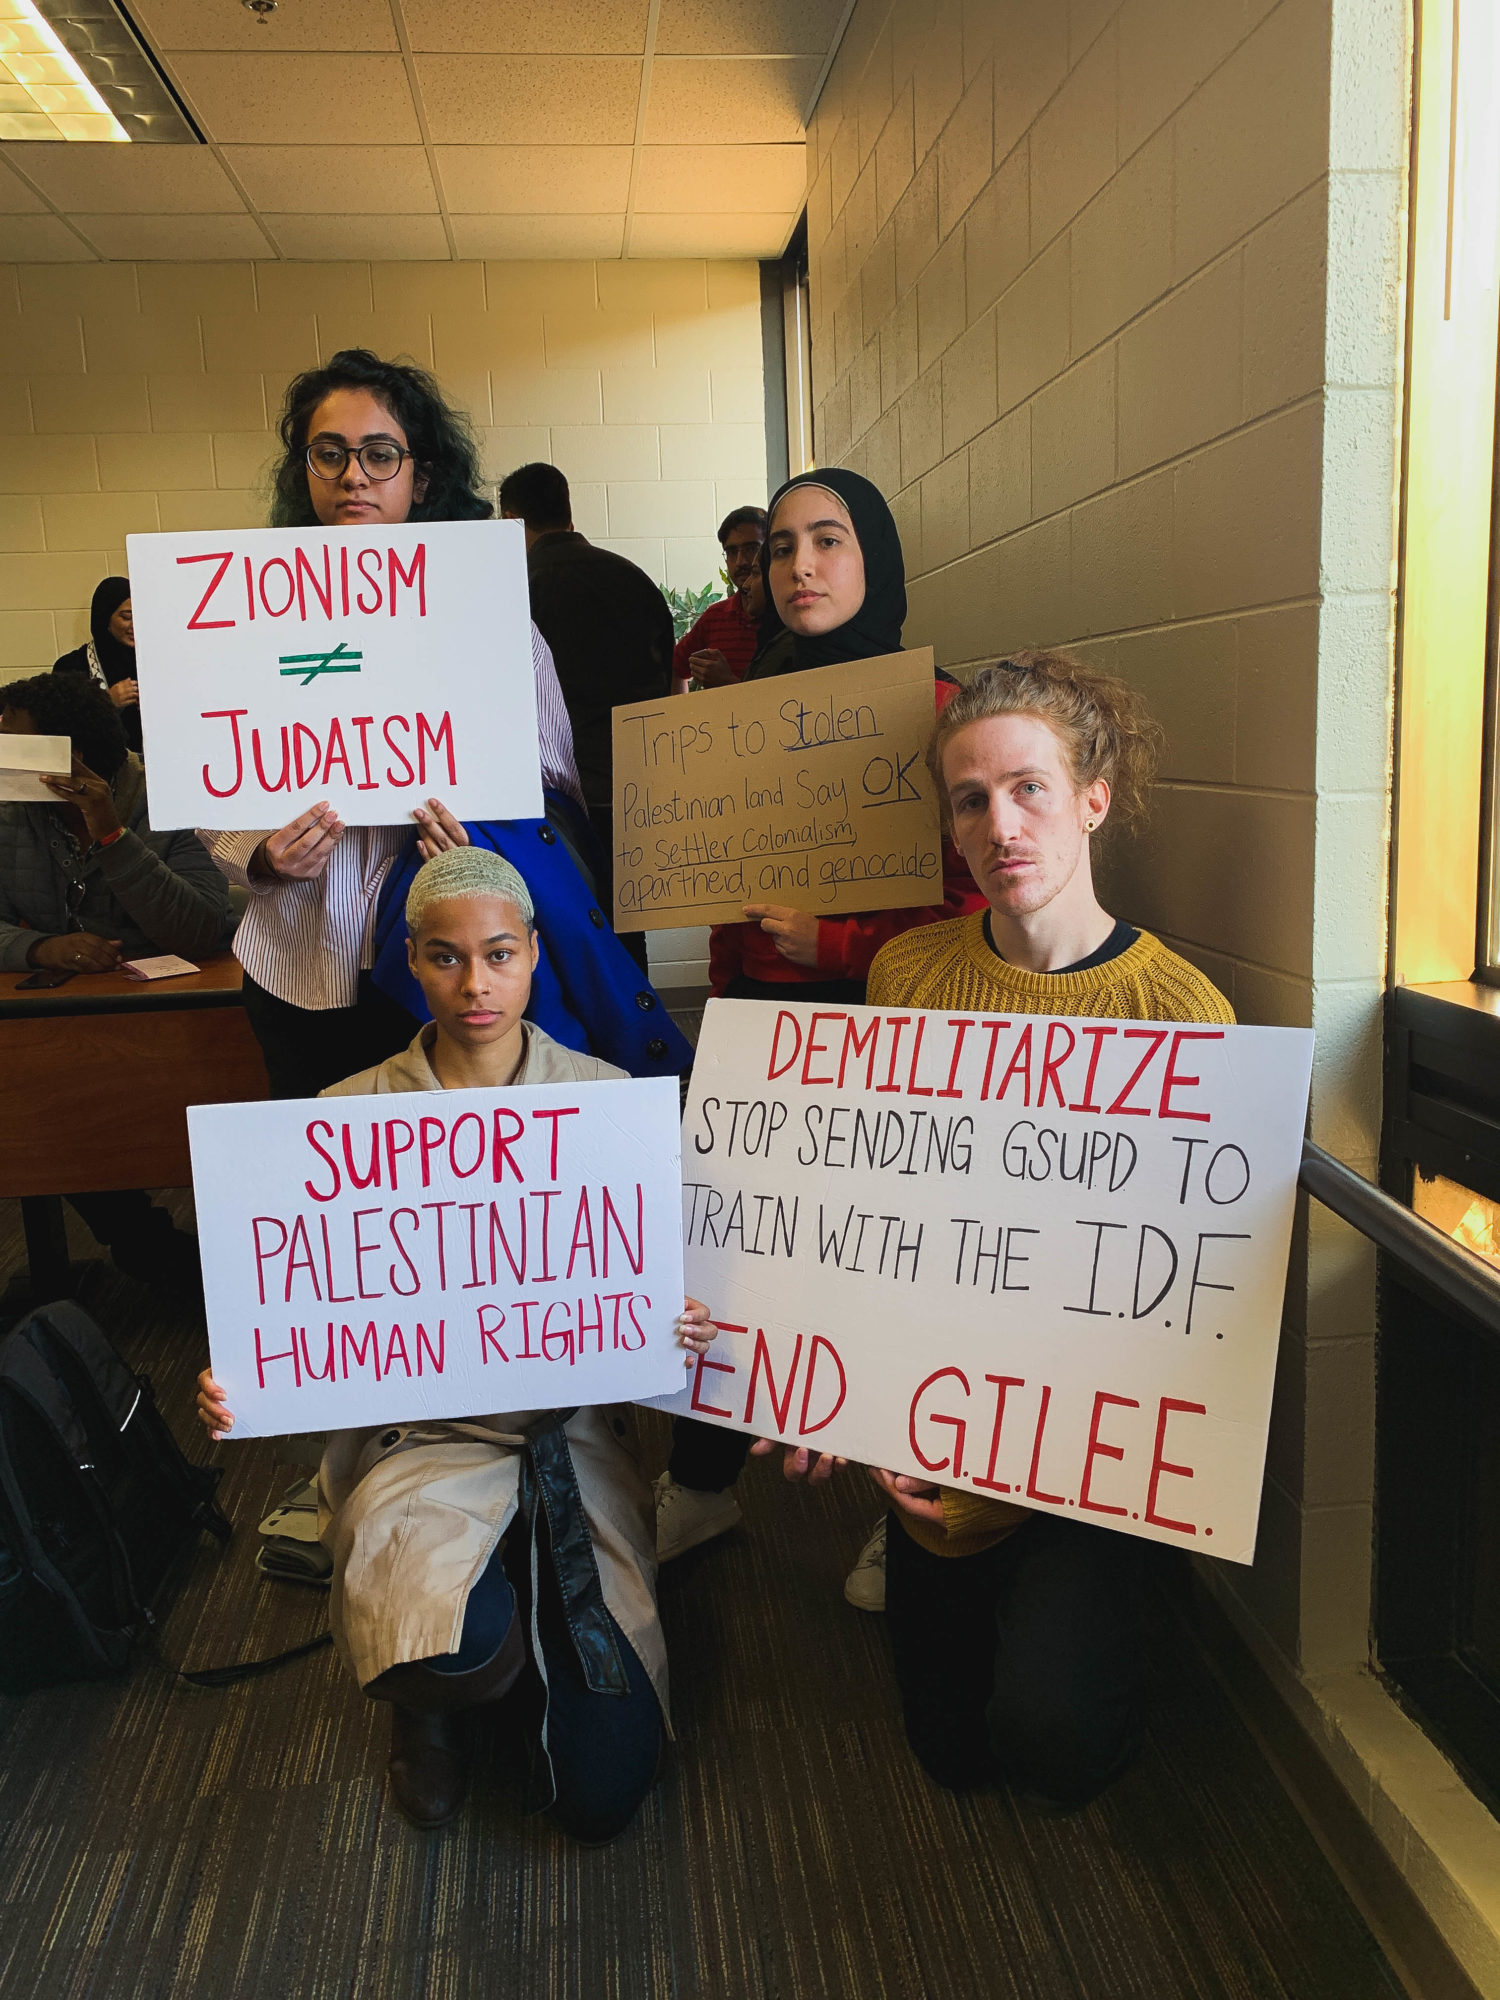 ZIONISM
≠
JUDAISM
Trips to Stolen
Palestinian land Say OK
to Settler Colonialism,
apartheid, and genocide
SUPPORT
PALESTINIAN
HUMAN RIGHTS
DEMILITARIZE
STOP SENDING G.S.U.P.D. TO
TRAIN WITH THE I.D.F.
END G.I.L.E.E.